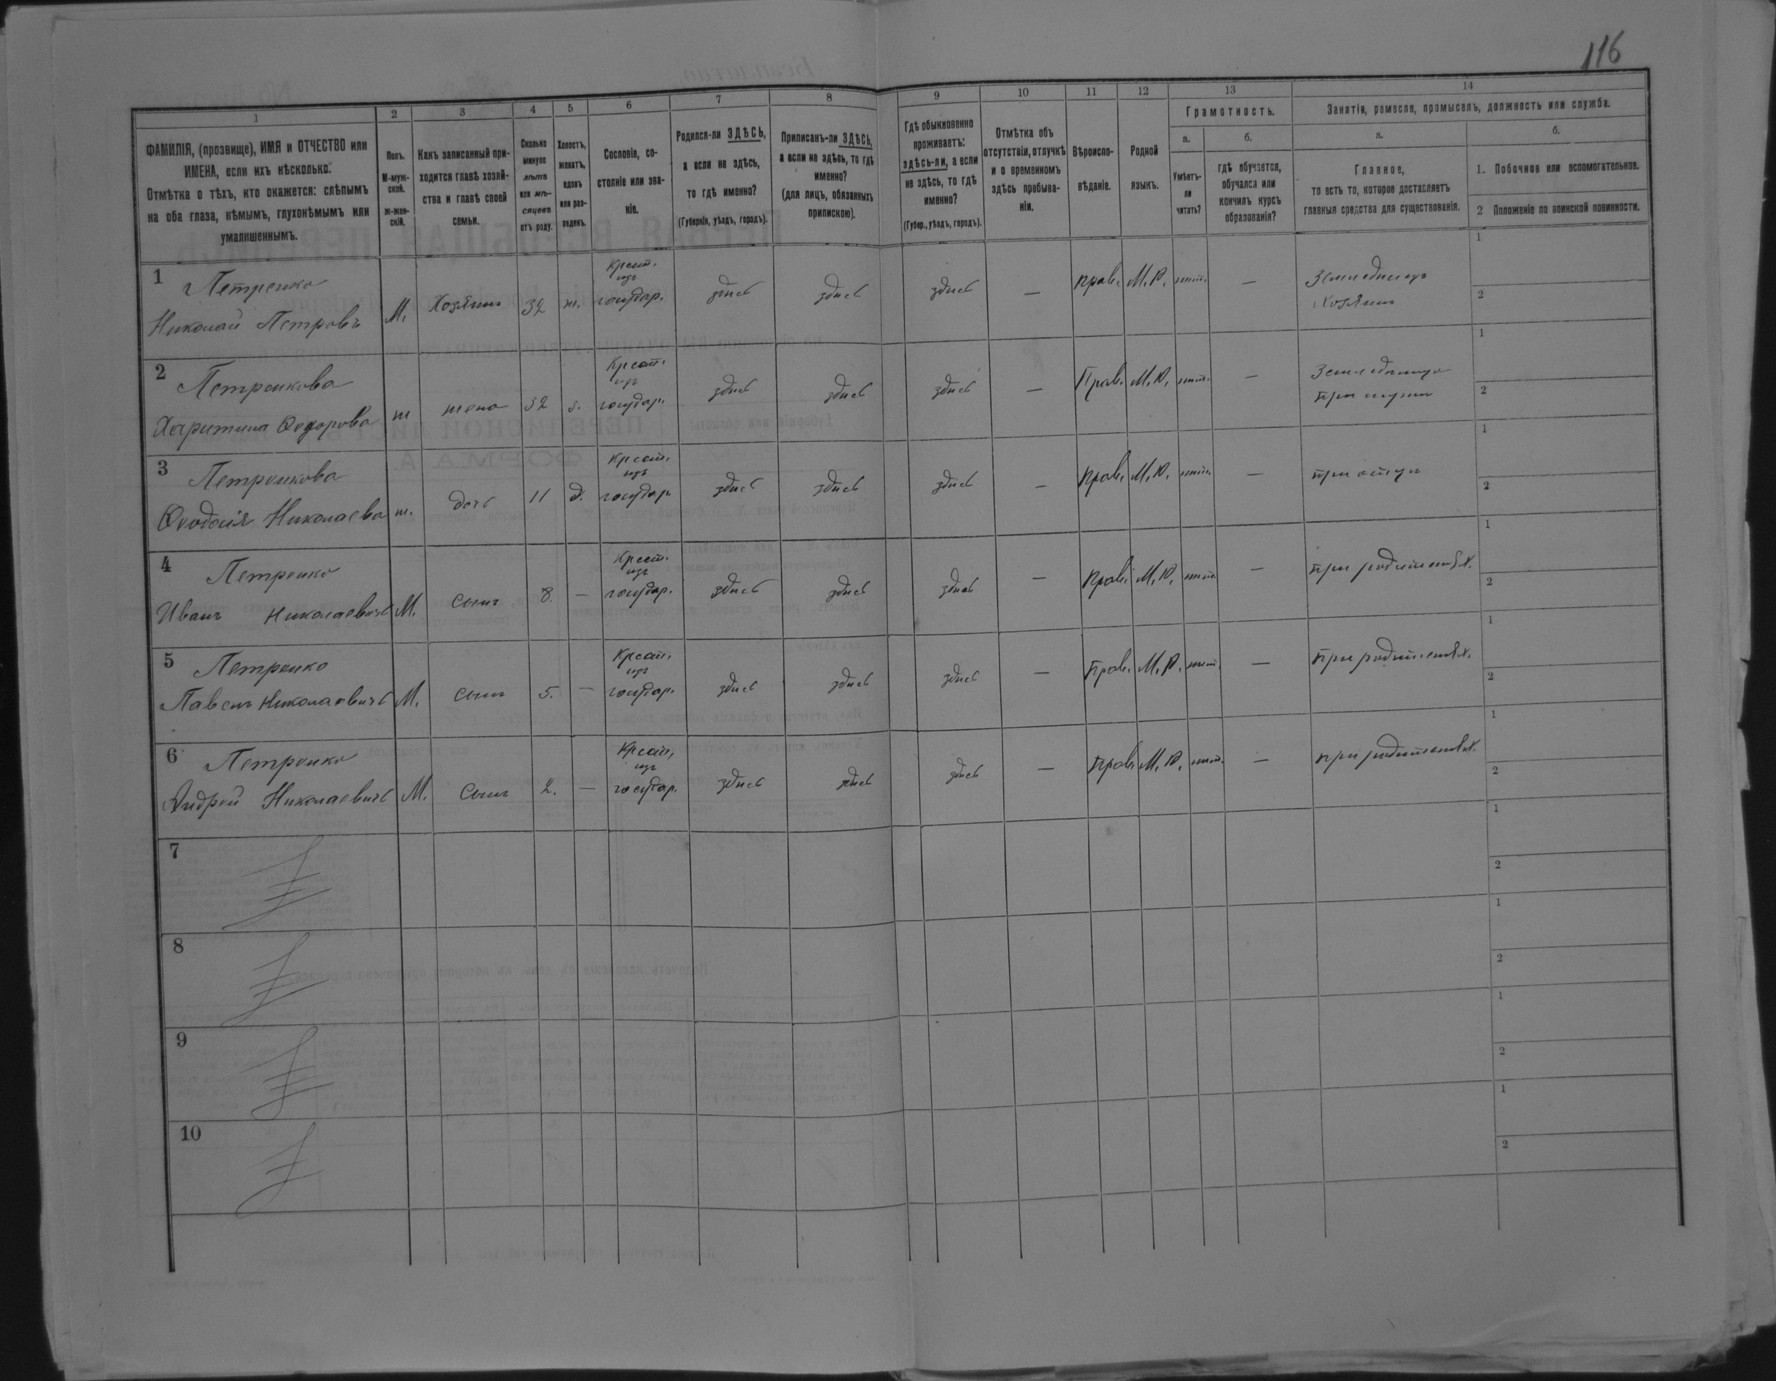 116
1
2
3
4
5
6
7
8
9
10
11
12
13
14
ФАМИЛІЯ, (прозвище), ИМЯ и ОТЧЕСТВО или
ИМЕНА, если ихъ нѣсколько.
Отмѣтка о тѣхъ, кто окажется: слѣпымъ
на оба глаза, нѣмымъ, глухонѣмымъ или
умалишеннымъ.
Полъ.
М-муж-
ской.
ж-жен-
скій.
Какъ записанный при-
ходится главѣ хозяй-
ства и главѣ своей
семьи.
Сколько
минуло
лѣтъ
или мѣ-
сяцевъ
отъ роду.
Холостъ,
женатъ,
вдовъ
или раз-
веденъ.
Сословіе, со-
стояніе или зва-
ніе.
Родился-ли ЗДѢСЬ,
а если не здѣсь,
то гдѣ именно?
(Губернія, уѣздъ, городъ).
Приписанъ-ли ЗДѢСЬ,
а если не здѣсь, то гдѣ
именно?
(для лицъ, обязанныхъ
припискою).
Гдѣ обыкновенно
проживаетъ:
здѣсь-ли, а если
не здѣсь, то гдѣ
именно?
(Губер., уѣздъ, городъ).
Отмѣтка объ
отсутствіи, отлучкѣ
и о временномъ
здѣсь пребыва-
ніи.
Вѣроиспо-
вѣданіе.
Родной
языкъ.
Грамотность.
а.
Умѣетъ-
ли
читать?
б.
гдѣ обучается,
обучался или
кончилъ курсъ
образованія?
Занятіе, ремесло, промыселъ, должность или служба.
а.
Главное,
то есть то, которое доставляетъ
главныя средства для существованія.
б.
1. Побочное или вспомогательное.
2 Положеніе по воинской повинности.
1 Петренко
Николай Петровъ М. Хозяинъ 32 ж. Крест. изъ государ. здѣсь здѣсь здѣсь — Прав. М.Р. нѣтъ. — Земледѣлецъ Хозяинъ 1 2
2 Петренкова
Харитина Ѳедорова ж жена 32 з. Крест. изъ государ. здѣсь здѣсь здѣсь — Прав. М.Р. нѣтъ. — Земледѣлица при мужѣ 1 2
3 Петренкова
Ѳеодосія Николаева ж. дочь 11 д. Крест. изъ государ здѣсь здѣсь здѣсь — Прав. М.Р. нѣтъ. — при отцѣ 1 2
4 Петренко
Иванъ Николаевичъ М. сынъ 8. — Крест. изъ государ. здѣсь здѣсь здѣсь — Прав. М.Р. нѣтъ — при родителях. 1 2
5 Петренко
Павелъ Николаевичъ М. сынъ 5. — Крест. изъ государ. здѣсь здѣсь здѣсь — Прав. М.Р. нѣтъ. — при родителях. 1 2
6 Петренко
Андрей Николаевичъ М. сынъ 2. — Крест. изъ государ. здѣсь здѣсь здѣсь — Прав. М.Р. нѣтъ. — при родителях. 1 2
7 1 2
8 1 2
9 1 2
10 1 2